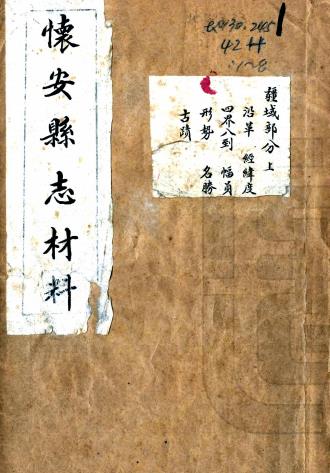 懷安縣志材料
疆域部分上
沿革 經緯度
四界八到 幅員
形勢 名勝
古蹟
42
1~8